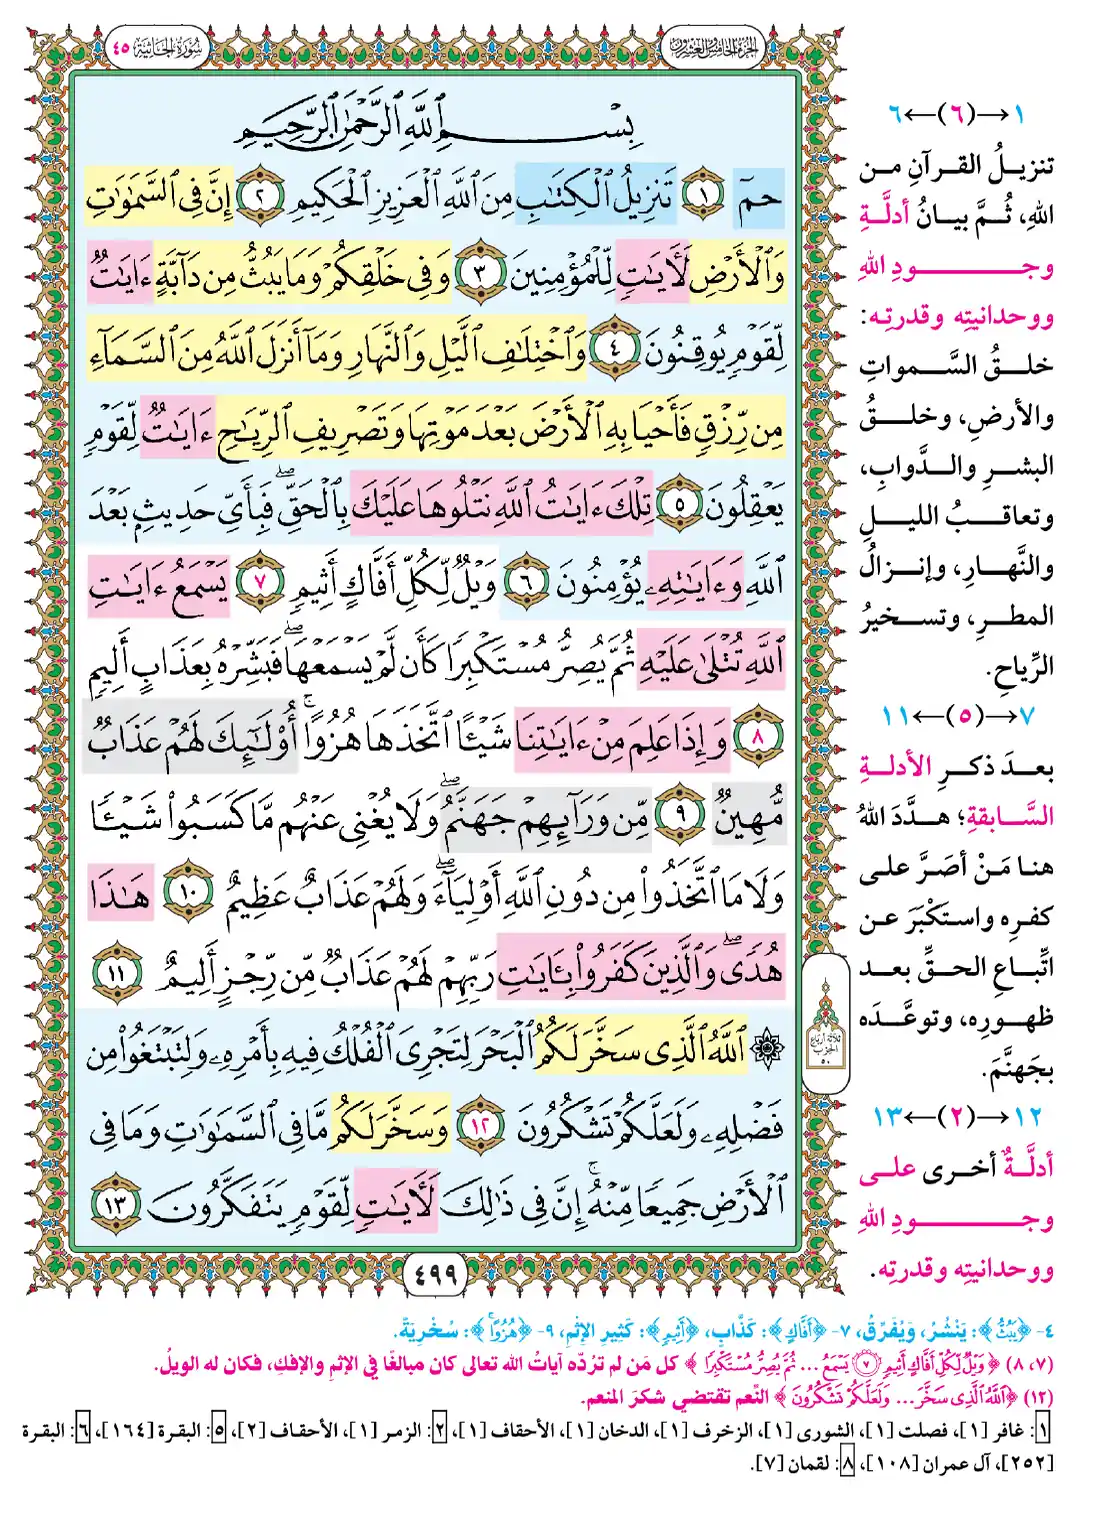 الجزء الخامس والعشرون
سورة الجاثية ٤٥
بِسْمِ ٱللَّهِ ٱلرَّحْمَٰنِ ٱلرَّحِيمِ
حمٓ ١ تَنزِيلُ ٱلْكِتَٰبِ مِنَ ٱللَّهِ ٱلْعَزِيزِ ٱلْحَكِيمِ ٢ إِنَّ فِى ٱلسَّمَٰوَٰتِ
وَٱلْأَرْضِ لَءَايَٰتٍ لِّلْمُؤْمِنِينَ ٣ وَفِى خَلْقِكُمْ وَمَا يَبُثُّ مِن دَآبَّةٍ ءَايَٰتٌ
لِّقَوْمٍ يُوقِنُونَ ٤ وَٱخْتِلَٰفِ ٱلَّيْلِ وَٱلنَّهَارِ وَمَآ أَنزَلَ ٱللَّهُ مِنَ ٱلسَّمَآءِ
مِن رِّزْقٍ فَأَحْيَا بِهِ ٱلْأَرْضَ بَعْدَ مَوْتِهَا وَتَصْرِيفِ ٱلرِّيَٰحِ ءَايَٰتٌ لِّقَوْمٍ
يَعْقِلُونَ ٥ تِلْكَ ءَايَٰتُ ٱللَّهِ نَتْلُوهَا عَلَيْكَ بِٱلْحَقِّ ۖ فَبِأَىِّ حَدِيثٍۭ بَعْدَ
ٱللَّهِ وَءَايَٰتِهِۦ يُؤْمِنُونَ ٦ وَيْلٌ لِّكُلِّ أَفَّاكٍ أَثِيمٍ ٧ يَسْمَعُ ءَايَٰتِ
ٱللَّهِ تُتْلَىٰ عَلَيْهِ ثُمَّ يُصِرُّ مُسْتَكْبِرًا كَأَن لَّمْ يَسْمَعْهَا ۖ فَبَشِّرْهُ بِعَذَابٍ أَلِيمٍ
٨ وَإِذَا عَلِمَ مِنْ ءَايَٰتِنَا شَيْـًٔا ٱتَّخَذَهَا هُزُوًا ۚ أُو۟لَٰٓئِكَ لَهُمْ عَذَابٌ
مُّهِينٌ ٩ مِّن وَرَآئِهِمْ جَهَنَّمُ ۖ وَلَا يُغْنِى عَنْهُم مَّا كَسَبُوا۟ شَيْـًٔا
وَلَا مَا ٱتَّخَذُوا۟ مِن دُونِ ٱللَّهِ أَوْلِيَآءَ ۖ وَلَهُمْ عَذَابٌ عَظِيمٌ ١٠ هَٰذَا
هُدًى ۖ وَٱلَّذِينَ كَفَرُوا۟ بِـَٔايَٰتِ رَبِّهِمْ لَهُمْ عَذَابٌ مِّن رِّجْزٍ أَلِيمٌ ١١
۞ ٱللَّهُ ٱلَّذِى سَخَّرَ لَكُمُ ٱلْبَحْرَ لِتَجْرِىَ ٱلْفُلْكُ فِيهِ بِأَمْرِهِۦ وَلِتَبْتَغُوا۟ مِن
فَضْلِهِۦ وَلَعَلَّكُمْ تَشْكُرُونَ ١٢ وَسَخَّرَ لَكُم مَّا فِى ٱلسَّمَٰوَٰتِ وَمَا فِى
ٱلْأَرْضِ جَمِيعًا مِّنْهُ ۚ إِنَّ فِى ذَٰلِكَ لَءَايَٰتٍ لِّقَوْمٍ يَتَفَكَّرُونَ ١٣
٤٩٩
١→(٦)←٦
تنزيلُ القرآنِ من
اللهِ، ثُمَّ بيانُ أدلَّةِ
وجودِ اللهِ
ووحدانيتِه وقدرتِه:
خلقُ السَّمواتِ
والأرضِ، وخلقُ
البشرِ والدَّوابِ،
وتعاقبُ الليلِ
والنَّهارِ، وإنزالُ
المطرِ، وتسخيرُ
الرِّياحِ.
٧→(٥)←١١
بعدَ ذكرِ الأدلةِ
السَّابقةِ؛ هدَّدَ اللهُ
هنا مَنْ أصَرَّ على
كفرِه واستَكْبَرَ عن
اتِّباعِ الحقِّ بعد
ظهورِه، وتوعَّدَه
بجَهنَّمَ.
١٢→(٢)←١٣
أدلَّةٌ أخرى على
وجودِ اللهِ
ووحدانيتِه وقدرتِه.
ثلاثة أرباع
الحزب
٥٠
٤- ﴿يَبُثُّ﴾: يَنْشُرُ، وَيُفَرِّقُ، ٧- ﴿أَفَّاكٍ﴾: كَذَّابٍ، ﴿أَثِيمٍ﴾: كَثِيرِ الإِثْمِ، ٩- ﴿هُزُوًا﴾: سُخْرِيَةً.
(٧، ٨) ﴿وَيْلٌ لِّكُلِّ أَفَّاكٍ أَثِيمٍ ٧ يَسْمَعُ ... ثُمَّ يُصِرُّ مُسْتَكْبِرًا﴾ كل مَن لم تَرُدّه آياتُ الله تعالى كان مبالغًا في الإثمِ والإفكِ، فكان له الويلُ.
(١٢) ﴿ٱللَّهُ ٱلَّذِى سَخَّرَ... وَلَعَلَّكُمْ تَشْكُرُونَ﴾ النِّعم تقتضي شكرَ المنعم.
١: غافر [١]، فصلت [١]، الشورى [١]، الزخرف [١]، الدخان [١]، الأحقاف [١]، ٢: الزمر [١]، الأحقاف [٢]، ٥: البقرة [١٦٤]، ٦: البقرة
[٢٥٢]، آل عمران [١٠٨]، ٨: لقمان [٧].